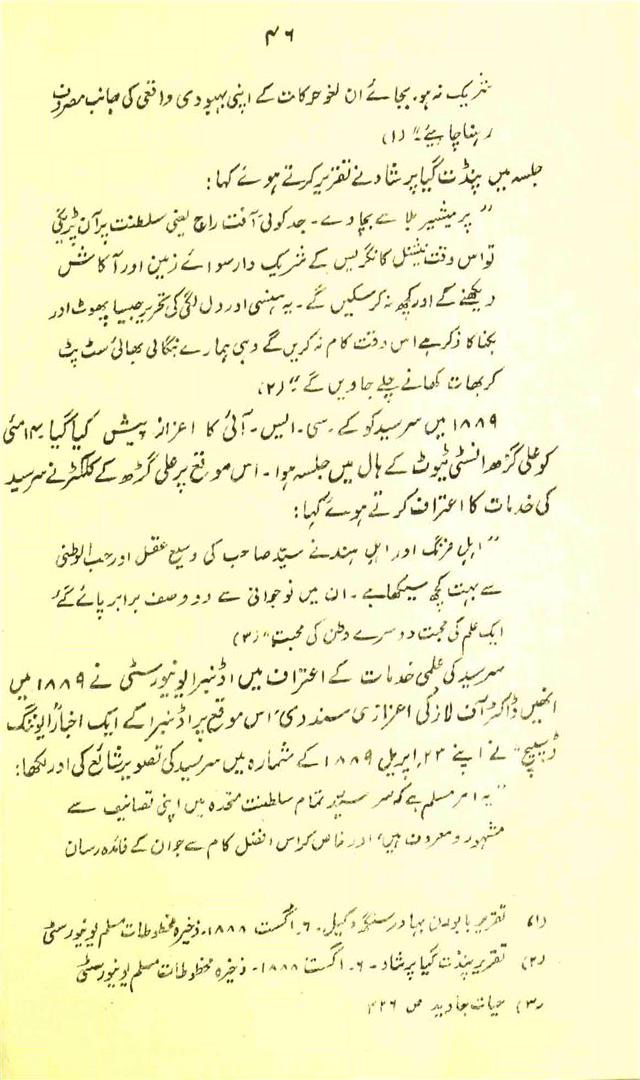 ۴۶
شریک نہ ہو۔ بجائے ان لغو حرکات کے اپنی بہبودی واقعی کی جانب مصروف
رہنا چاہیئے۔" (۱)
جلسہ میں پنڈت گیا پرشاد نے تقریر کرتے ہوئے کہا:
"پرمیشیر بلا سے بچاوے۔ جد کوئی آفت راج یعنی سلطنت پر آن پڑیگی
تو اس وقت نیشنل کانگریس کے شریک دار سوائے زمین اور آکاش
دیکھنے کے اور کچھ نہ کر سکیں گے۔ یہ ہنسی اور دل لگی کی تحریر جیسا پھوٹ اور
بکنا کا ذکر ہے اس وقت کام نہ کریں گے وہی ہمارے بنگالی بھائی سٹ پٹ
کر بھات کھانے چلے جاویں گے۔" (۲)
۱۸۸۹ میں سرسید کو کے۔ سی۔ ایس۔ آئی کا اعزاز پیش کیا گیا۔ ۱۴ مئی
کو علی گڑھ انسٹی ٹیوٹ کے ہال میں جلسہ ہوا۔ اس موقع پر علی گڑھ کے کلکٹر نے سرسید
کی خدمات کا اعتراف کرتے ہوئے کہا:
"اہل فرنگ اور اہل ہند نے سید صاحب کی وسیع عقل اور حب الوطنی
سے بہت کچھ سیکھا ہے۔ ان میں نوجوانی سے دو وصف برابر پائے گئے،
ایک علم کی محبت دوسرے وطن کی محبت" (۳)
سرسید کی علمی خدمات کے اعتراف میں اڈنبرا یونیورسٹی نے ۱۸۸۹ میں
انھیں ڈاکٹر آف لاز کی اعزازی سند دی، اس موقع پر اڈنبرا کے ایک اخبار "ایوننگ
ڈسپیچ" نے اپنے ۲۳، اپریل ۱۸۸۹ کے شمارہ میں سرسید کی تصویر شائع کی اور لکھا:
"یہ امر مسلم ہے کہ سرسید تمام سلطنت متحدہ میں اپنی تصانیف سے
مشہور و معروف ہیں، اور خاص کر اس افضل کام سے جو ان کے فائدہ رسان
(۱) تقریر بابو دن بہادر سنگھ وکیل۔ ۶۔ اگست ۱۸۸۸۔ ذخیرہ مخطوطات مسلم یونیورسٹی
(۲) تقریر پنڈت گیا پرشاد۔ ۶۔ اگست ۱۸۸۸۔ ذخیرہ مخطوطات مسلم یونیورسٹی
(۳) حیات جاوید ص ۴۲۶